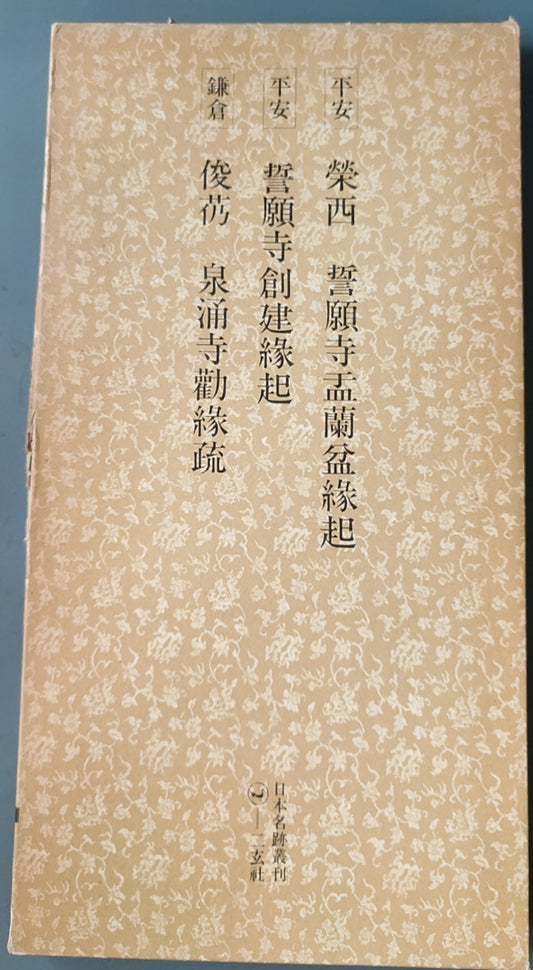 平安 榮西 誓願寺盂蘭盆緣起
平安 誓願寺創建緣起
鎌倉 俊芿 泉涌寺勸緣疏
日本名跡叢刊
二玄社